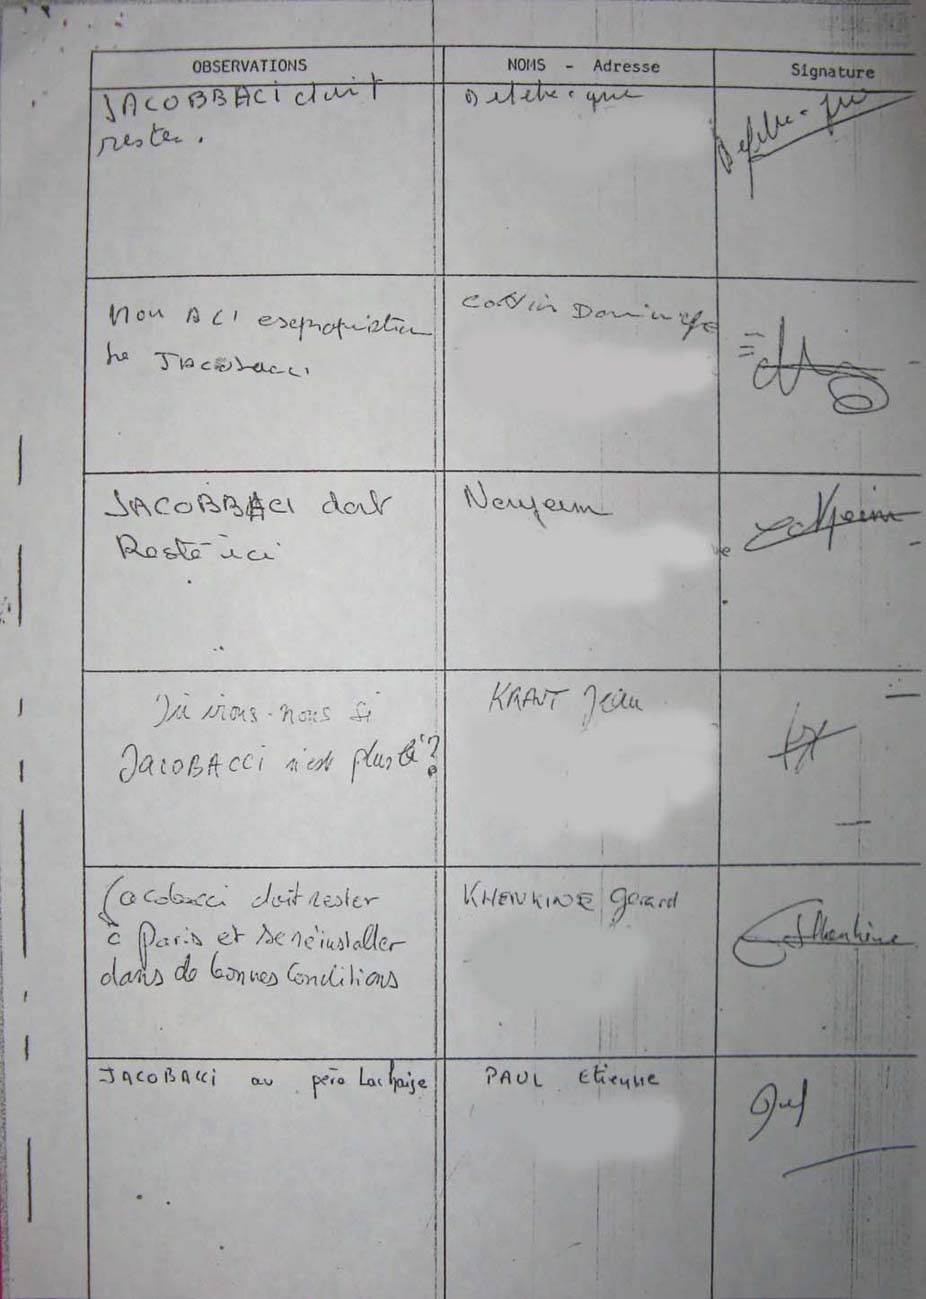 OBSERVATIONS
NOMS - Adresse
Signature
JACOBBACI doit
rester.
Non ACI esepropriation
JACOBACCI
Dominique
JACOBBACI doit
Reste ici
Où irons-nous si
JACOBACCI n'est plus là ?
KRANT Jean
Jacobacci doit rester
à Paris et se réinstaller
dans de bonnes Conditions
KHENKINE Gérard
Khenkine
JACOBACCI au père Lachaise
PAUL Etienne